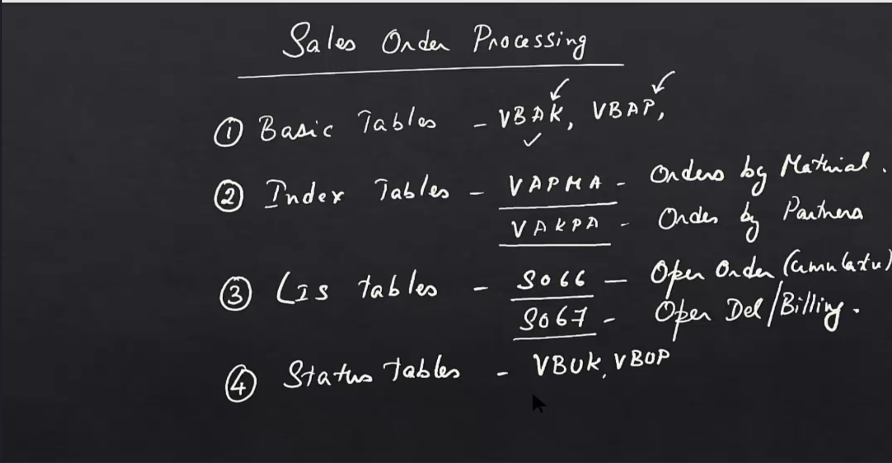 Sales Order Processing
① Basic Tables - VBAK, VBAP,
② Index Tables - VAPMA - Orders by Material.
VAKPA - Order by Partners
③ LIS tables - S066 - Open Order (Cumulatu)
S067 - Open Del/Billing.
④ Status Tables - VBUK, VBUP